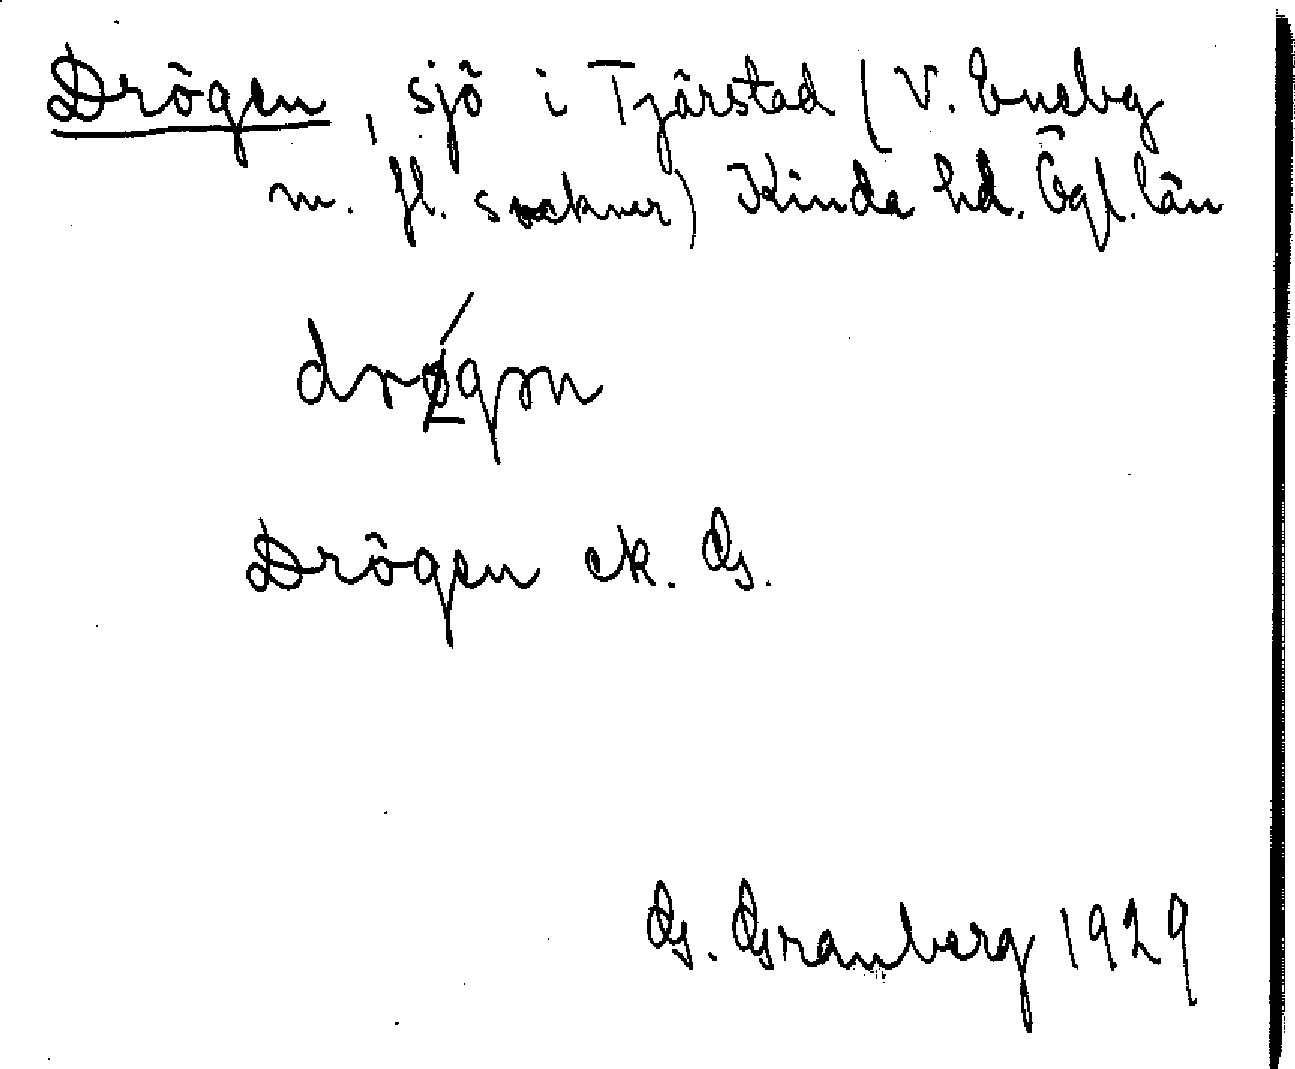 Drögen, sjö i Tjärstad (V. Eneby
m. fl. socknar) Kinda hd. Ögl. län
Drögen ek. G.
G. Granberg 1929